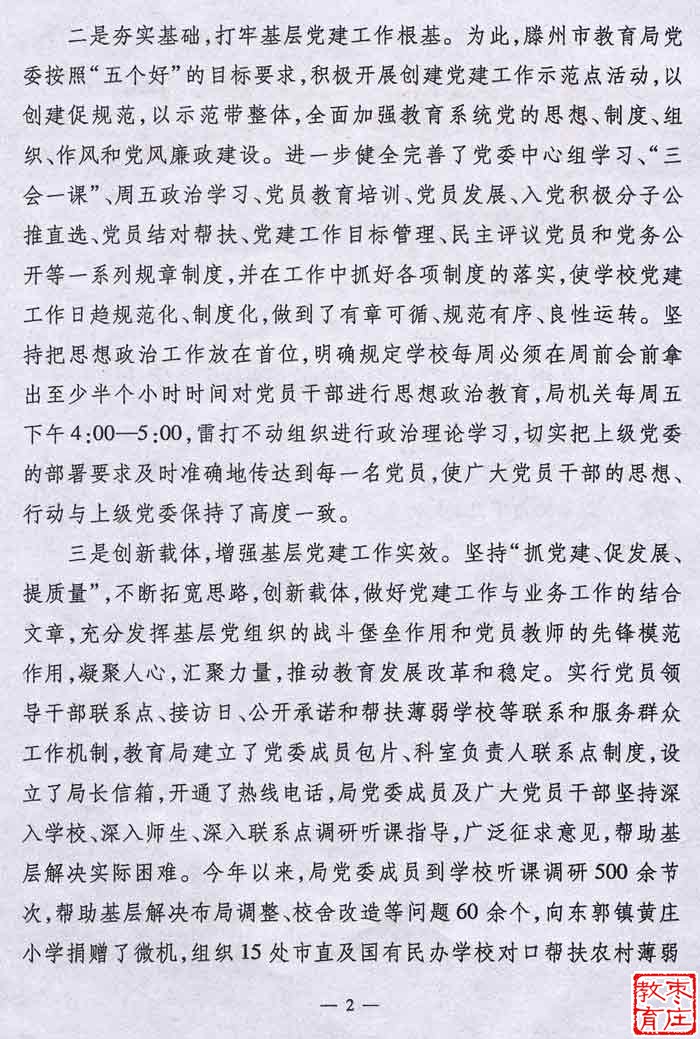 二是夯实基础，打牢基层党建工作根基。为此，滕州市教育局党
委按照“五个好”的目标要求，积极开展创建党建工作示范点活动，以
创建促规范，以示范带整体，全面加强教育系统党的思想、制度、组
织、作风和党风廉政建设。进一步健全完善了党委中心组学习、“三
会一课”、周五政治学习、党员教育培训、党员发展、入党积极分子公
推直选、党员结对帮扶、党建工作目标管理、民主评议党员和党务公
开等一系列规章制度，并在工作中抓好各项制度的落实，使学校党建
工作日趋规范化、制度化，做到了有章可循、规范有序、良性运转。坚
持把思想政治工作放在首位，明确规定学校每周必须在周前会前拿
出至少半个小时时间对党员干部进行思想政治教育，局机关每周五
下午4:00—5:00，雷打不动组织进行政治理论学习，切实把上级党委
的部署要求及时准确地传达到每一名党员，使广大党员干部的思想、
行动与上级党委保持了高度一致。
三是创新载体，增强基层党建工作实效。坚持“抓党建、促发展、
提质量”，不断拓宽思路，创新载体，做好党建工作与业务工作的结合
文章，充分发挥基层党组织的战斗堡垒作用和党员教师的先锋模范
作用，凝聚人心，汇聚力量，推动教育发展改革和稳定。实行党员领
导干部联系点、接访日、公开承诺和帮扶薄弱学校等联系和服务群众
工作机制，教育局建立了党委成员包片、科室负责人联系点制度，设
立了局长信箱，开通了热线电话，局党委成员及广大党员干部坚持深
入学校、深入师生、深入联系点调研听课指导，广泛征求意见，帮助基
层解决实际困难。今年以来，局党委成员到学校听课调研500余节
次，帮助基层解决布局调整、校舍改造等问题60余个，向东郭镇黄庄
小学捐赠了微机，组织15处市直及国有民办学校对口帮扶农村薄弱
— 2 —
枣庄
教育